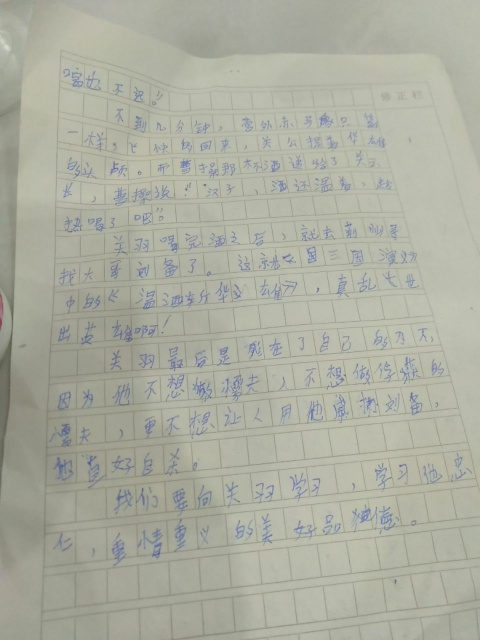 喝也不迟。"
不到几分钟,
一样飞快的回来,关公提着华雄
的头颅。而曹操那杯酒递给了关
长,曹操说:"汉子,酒还温着,
喝了吧!"
关羽喝完酒之后,就去
找大哥刘备了。这就是《三国演义》
中的《温酒斩华雄》,真乱世
出英雄啊!
关羽最后是死在了自己的刀下,
因为他不想做懦夫,不想做俘虏的
懦夫,更不想让人用他威胁刘备,
他直好自杀。
我们要向关羽学习,学习他忠
仁,重情重义的美好品德。
修正栏